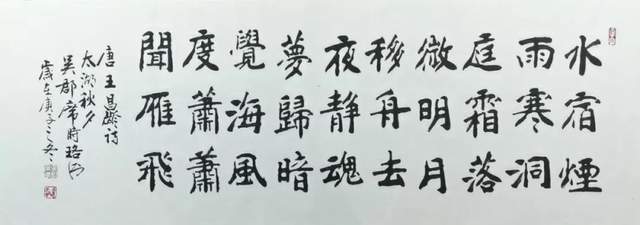 水宿煙
雨寒洞
庭霜落
微明月
移舟去
夜静魂
夢歸暗
覺海風
度蕭蕭
聞雁飛
唐王昌齡詩
太湖秋夕
吴郡席時珞书
歲在庚子之冬